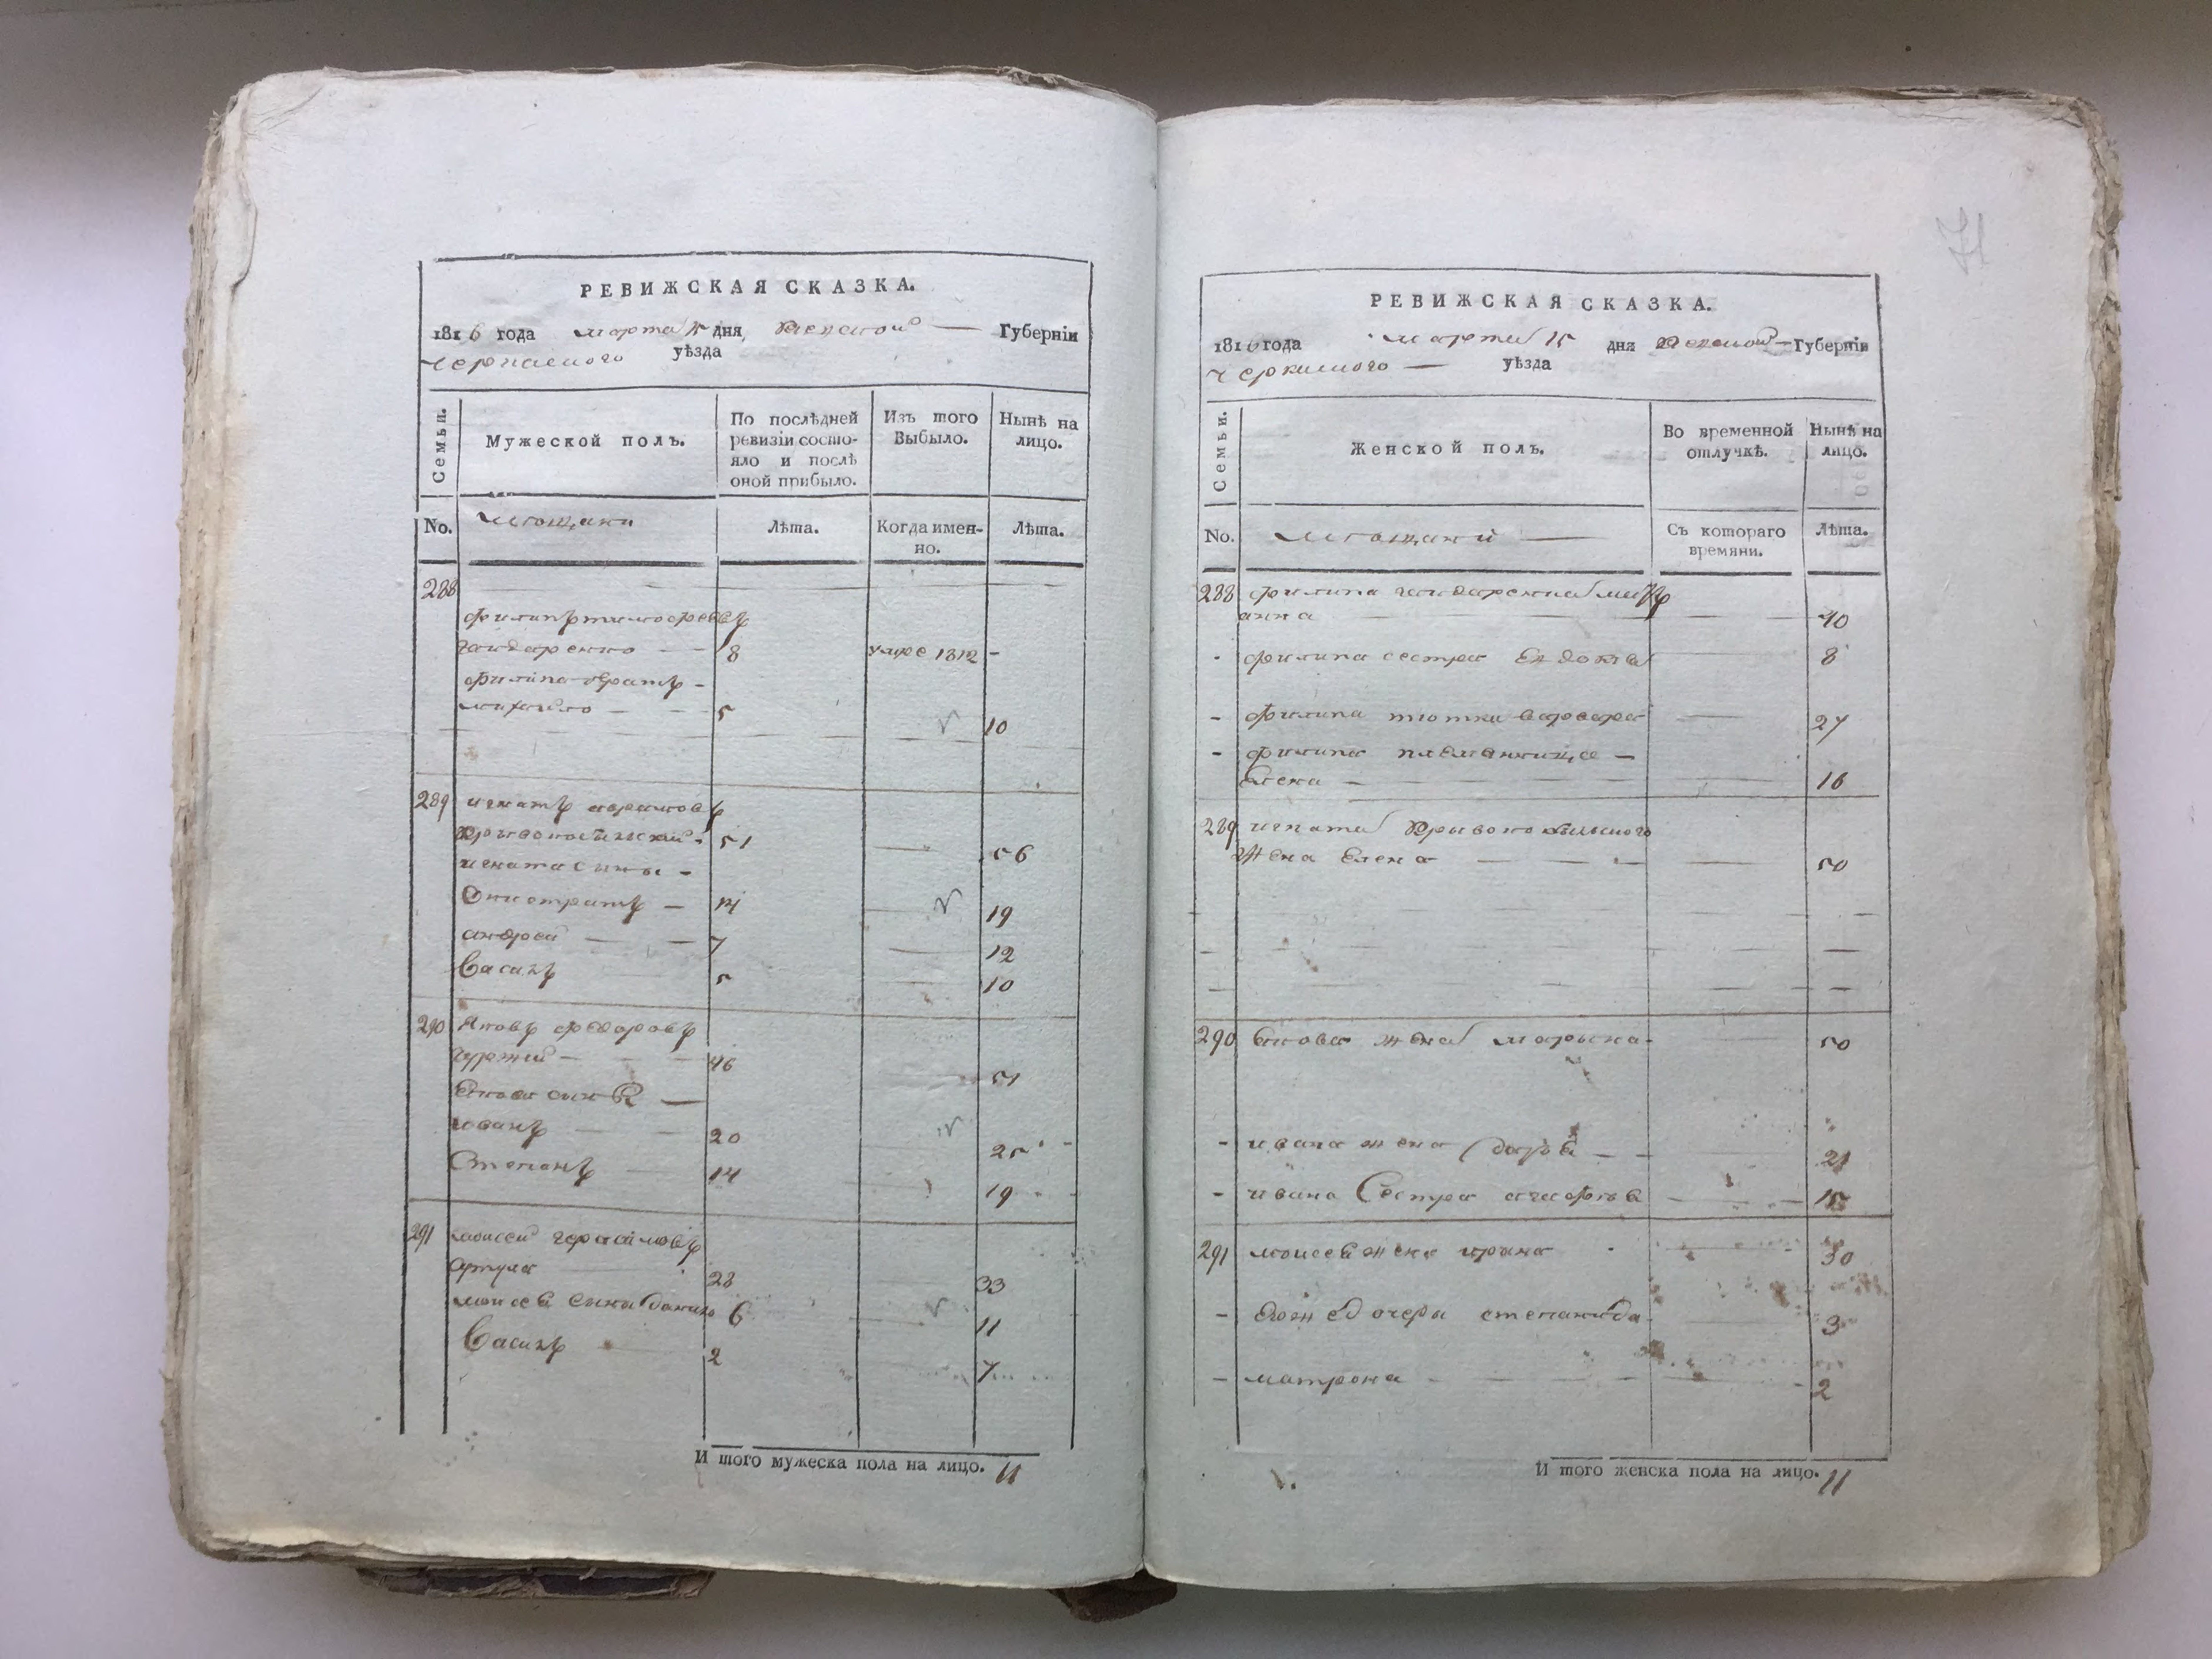 РЕВИЖСКАЯ СКАЗКА.
1816 года марта 15 дня Киевской — Губерніи
Черкаского уѣзда
Семьи.
Мужеской полъ.
По послѣдней ревизіи состояло и послѣ оной прибыло.
Изъ того Выбыло.
Нынѣ на лицо.
No.
мещани
Лѣта.
Когда именно.
Лѣта.
288
Филипъ тимофеевъ
гайдаренко — 8 умре 1812 -
Филипа братъ -
михайло — 5 10
289 игнатъ аврамовъ
51 — 56
игната сыны -
Онистратъ — 14 — 19
андрей — 7 — 12
Василь 5 — 10
290 Яковъ федоровъ
гуржий — 46 — 51
Якова сын —
иванъ — 20 25
Степанъ — 14 19
291 моисей герасимовъ
артуха 28 33
моисея сына данило 6 — 11
Василь 2 7
И того мужеска пола на лицо. 11
71
РЕВИЖСКАЯ СКАЗКА.
1816 года марта 15 дня Киевской — Губерніи
Черкаского — уѣзда
Семьи.
Женской полъ.
Во временной отлучкѣ.
Нынѣ на лицо.
No.
мещани —
Съ котораго времяни.
Лѣта.
288 филипа гайдаренка мать
анна — 40
- филипа сестра Евдокия 8
- филипа тютка варвара — 27
- филипа племянница —
Елена — 16
289 игната
Жена Елена — 50
290 Якова жена марьяна - 50
- ивана жена дарья — 21
- ивана Сестра агафия — 15
291 моисея жена ирина — 30
- Его ж дочери степанида 3
- матрона — 2
И того женска пола на лицо. 11